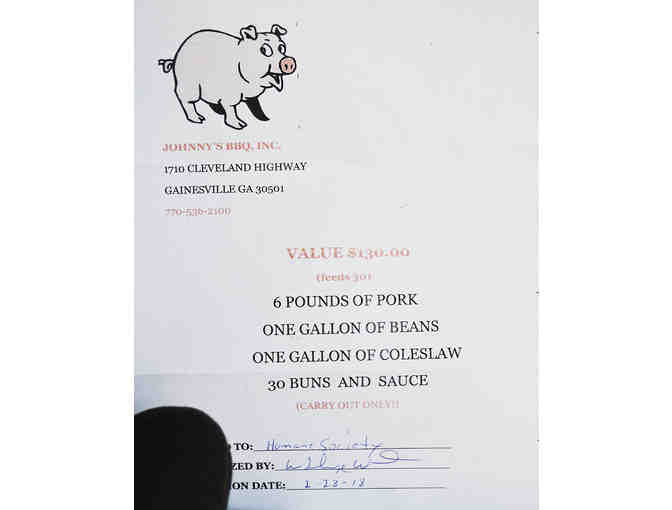 JOHNNY'S BBQ, INC.
1710 CLEVELAND HIGHWAY
GAINESVILLE GA 30501
770-536-2100
VALUE $130.00
(feeds 30)
6 POUNDS OF PORK
ONE GALLON OF BEANS
ONE GALLON OF COLESLAW
30 BUNS AND SAUCE
(CARRY OUT ONLY!)
TO: Humane Society
ZED BY:
ON DATE: 2-28-18